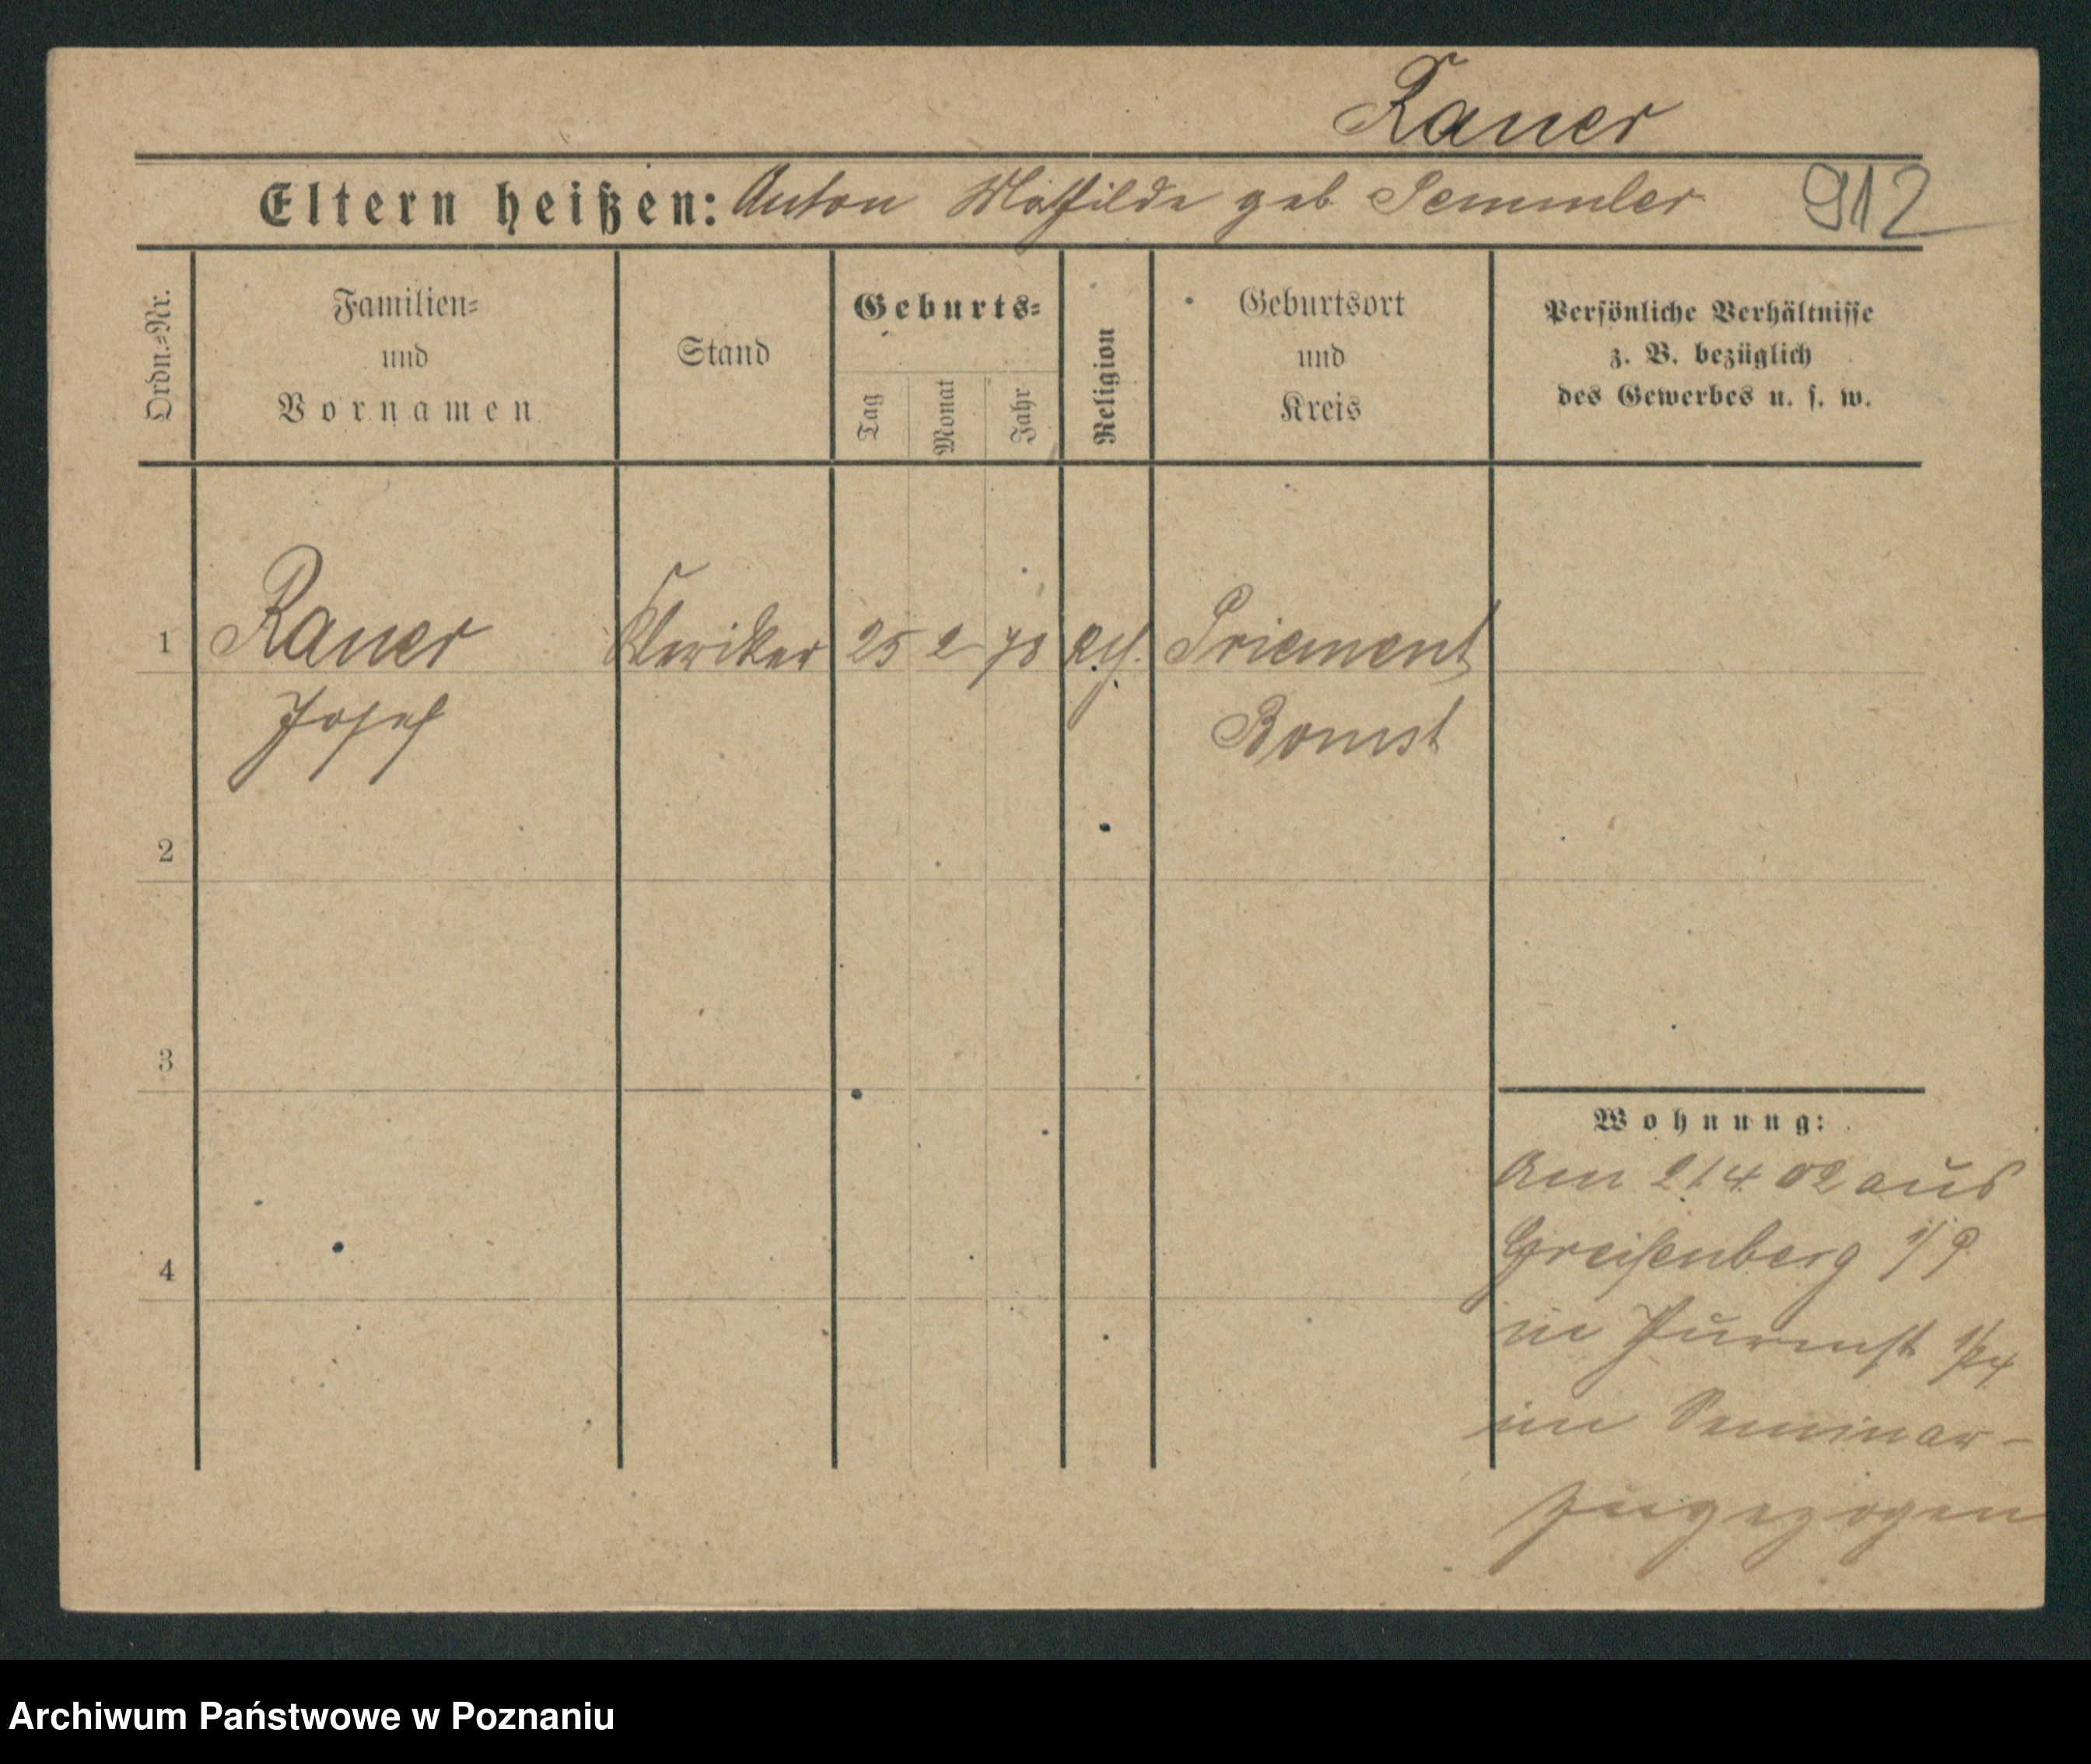 Rauer
Eltern heißen: Anton Mathilde geb Semmler 912
Ordn.=Nr.
Familien=
und
Vornamen
Stand
Geburts=
Tag
Monat
Jahr
Religion
Geburtsort
und
Kreis
Persönliche Verhältnisse
z. B. bezüglich
des Gewerbes u. s. w.
1 Rauer Kleriker 25 2 78 Priement
Josef Bomst
2
3
4
Wohnung:
Am 21 4 02 aus
Greifenberg i/P
in
im Seminar-
zugezogen
Archiwum Państwowe w Poznaniu